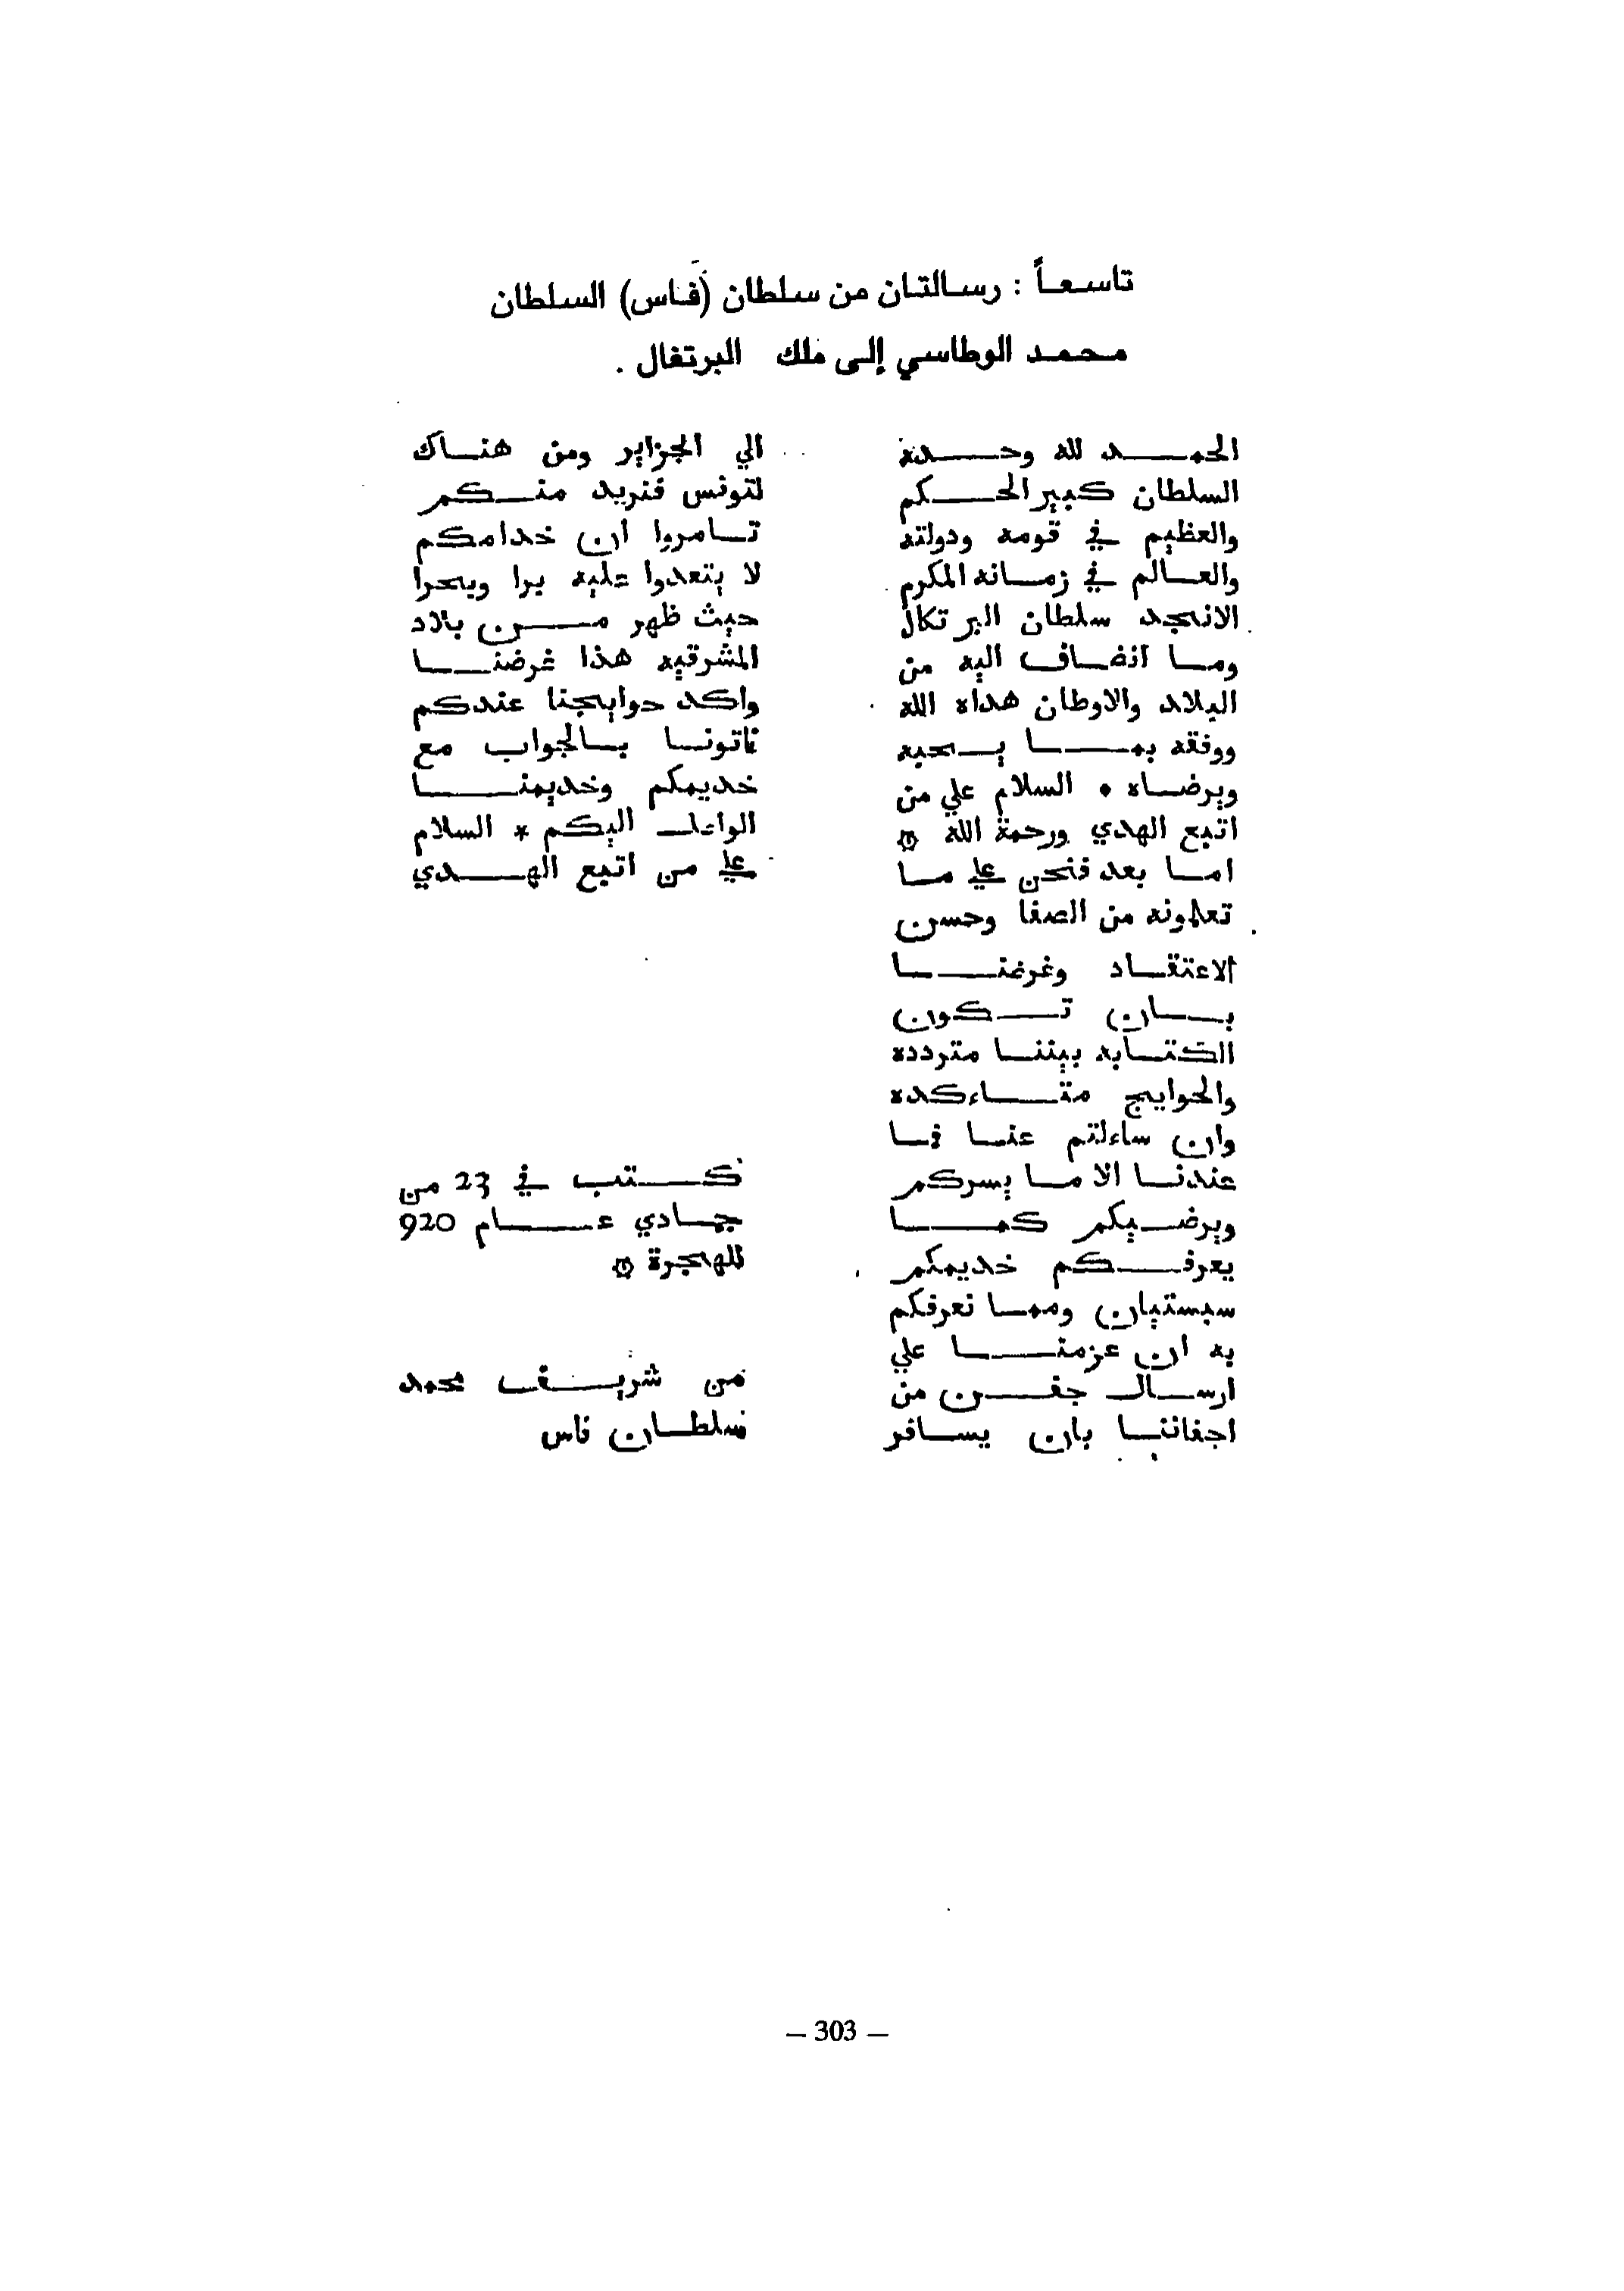 تاسعاً : رسالتان من سلطان (فاس) السلطان
محمد الوطاسي إلى ملك البرتغال .
الحمد لله وحده
السلطان كبير الحكم
والعظيم في قومه ودولته
والعالم في زمانه المكرم
الانجد سلطان البرتكال
وما انضاف اليه من
البلاد والاوطان هداه الله
ووفقه بما يحبه
ويرضاه • السلام علي من
اتبع الهدي ورحمة الله ۞
اما بعد فنحن علي ما
تعلمونه من الصفا وحسن
الاعتقاد وغرضنا
بان تكون
الكتابه بيننا متردده
والحوايج متاءكده
وان ساءلتم عنا فما
عندنا الا ما يسركم
ويرضيكم كما
يعرفكم خديمكم
سبستيان ومما نعرفكم
به ان عزمنا علي
ارسال جفن من
اجفاننا بان يسافر
الي الجزاير ومن هناك
لتونس فنريد منكم
تامروا ان خدامكم
لا يتعدوا عليه برا وبحرا
حيث ظهر من بلاد
المشرقيه هذا غرضنا
واكد حوايجنا عندكم
فاتونا بالجواب مع
خديمكم وخديمنا
الواصل اليكم * السلام
علي من اتبع الهدي
كتب في 23 من
جمادي عام 920
للهجرة ۞
من شريف محمد
سلطان فاس
— 303 —